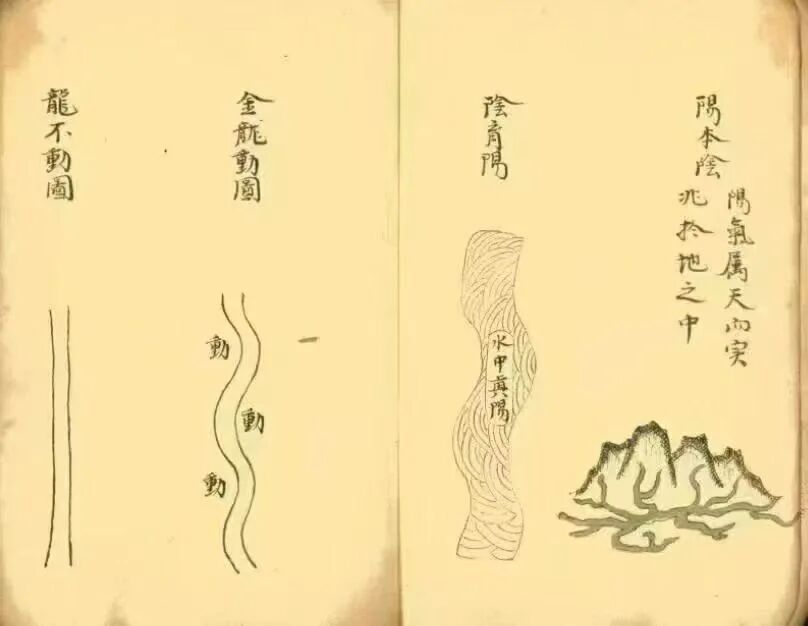 陽本陰
陽氣屬天而实
兆於地之中
陰育陽
水中真陽
金龍動圖
動
動
動
龍不動圖